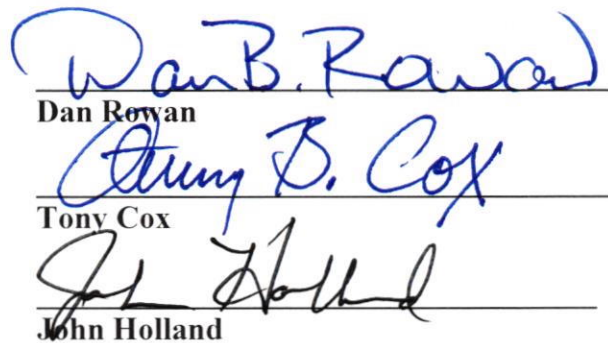 Dan B. Rowan
Dan Rowan
B. Cox
Tony Cox
John Holland
John Holland